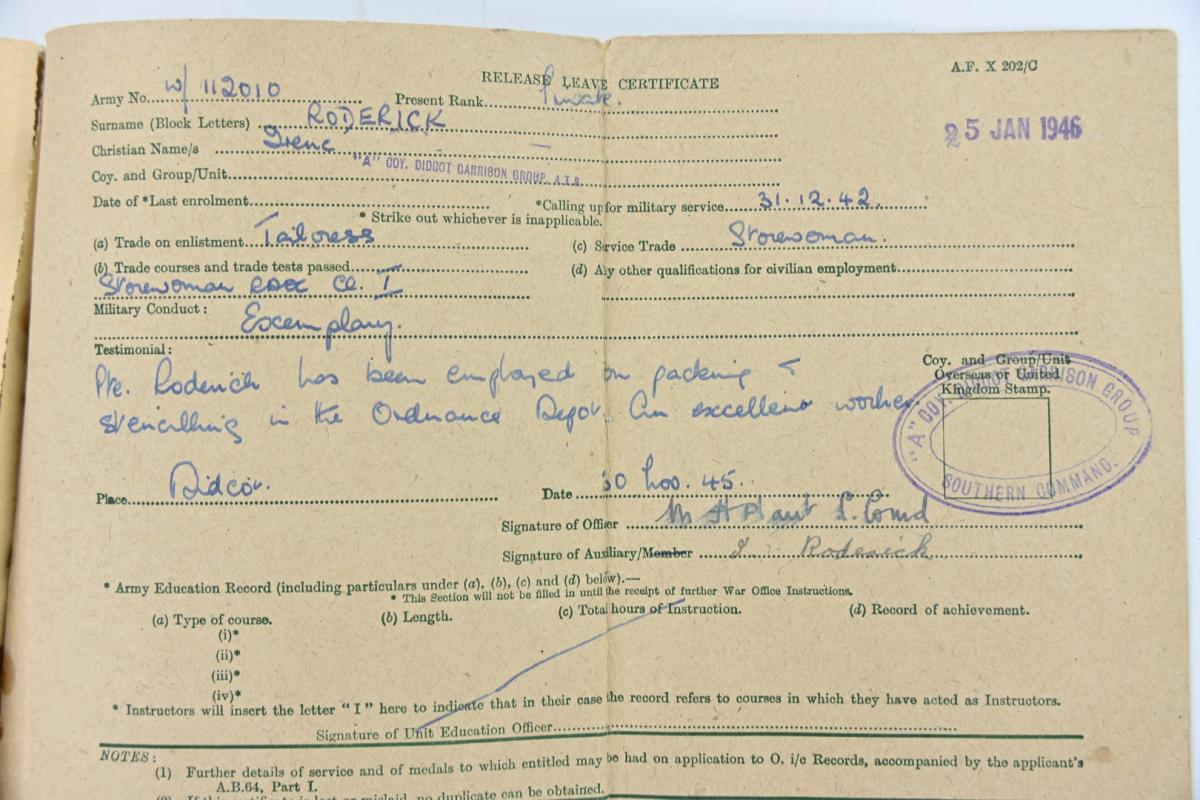 A.F. X 202/C
RELEASE LEAVE CERTIFICATE
Army No. W/ 112010 Present Rank Private.
25 JAN 1946
Surname (Block Letters) RODERICK
Christian Name/s Irene
Coy. and Group/Unit "A" COY. DIDCOT GARRISON GROUP, A.T.S.
Date of *Last enrolment *Calling up for military service 31.12.42.
* Strike out whichever is inapplicable.
(a) Trade on enlistment Tailoress (c) Service Trade Storewoman.
(b) Trade courses and trade tests passed (d) Any other qualifications for civilian employment
Storewoman RAOC Cl. I
Military Conduct: Exemplary.
Testimonial:
Pte. Roderick has been employed on packing &
stencilling in the Ordnance Depot. An excellent worker.
Coy. and Group/Unit
Overseas or United
Kingdom Stamp.
"A" COY. DIDCOT GARRISON GROUP
SOUTHERN COMMAND.
Place Didcot. Date 30 Nov. 45.
Signature of Officer M H Plant
Signature of Auxiliary/Member I. Roderick
* Army Education Record (including particulars under (a), (b), (c) and (d) below).—
* This Section will not be filled in until the receipt of further War Office Instructions.
(a) Type of course. (b) Length. (c) Total hours of Instruction. (d) Record of achievement.
(i)*
(ii)*
(iii)*
(iv)*
* Instructors will insert the letter "I" here to indicate that in their case the record refers to courses in which they have acted as Instructors.
Signature of Unit Education Officer
NOTES:
(1) Further details of service and of medals to which entitled may be had on application to O. i/c Records, accompanied by the applicant's
A.B.64, Part I.
(2) If this certificate is lost or mislaid, no duplicate can be obtained.